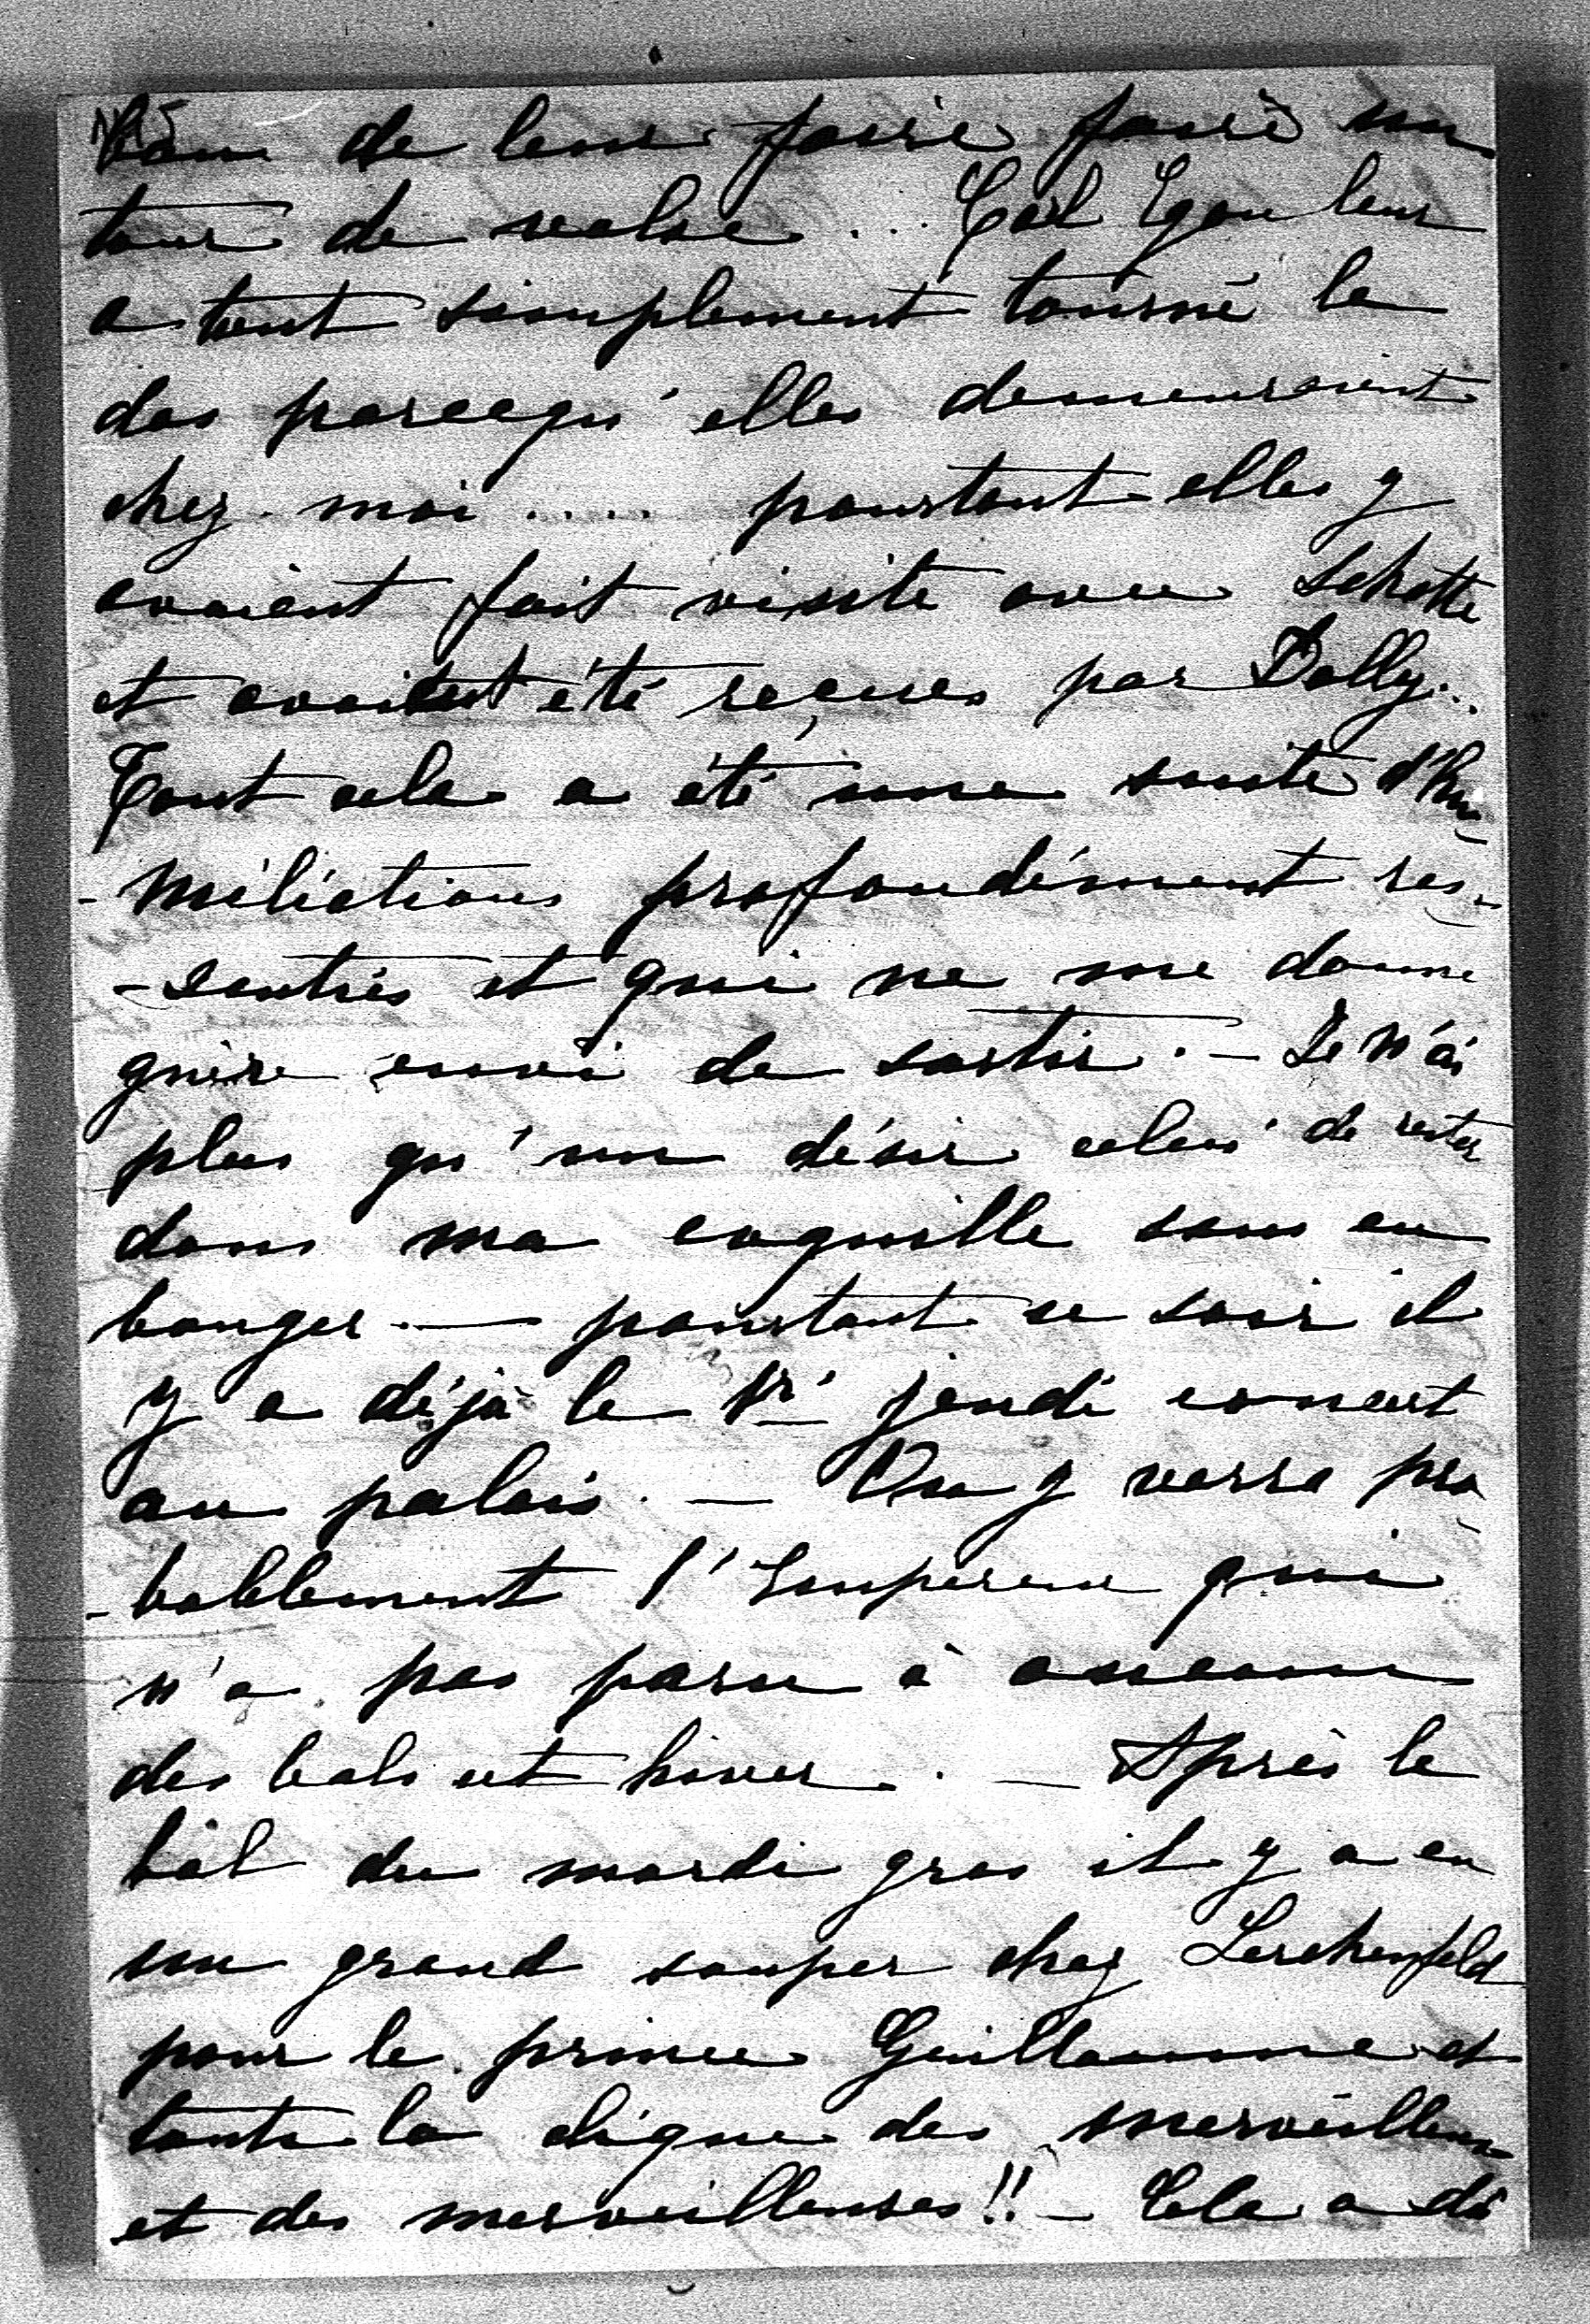 bon de leur faire faire un
tour de valse ... Carl Egon leur
a tout simplement tourné le
dos parcequ'elles demeuraient
chez moi ..... pourtant elles y
avaient fait visite avec
et avaient été reçues par Dolly..
Tout cela a été une suite d'hu-
-miliations profondément res-
-senties et qui ne me donne
guère envie de sortir. — Je n'ai
plus qu'un désir celui de rester
dans ma coquille sans en
bouger — pourtant ce soir il
y a déjà le 1er jeudi concert
au palais. — On y verra pro-
-bablement l'Empereur qui
n'a pas paru à aucun
des bals cet hiver. — Après le
bal du mardi gras il y a eu
un grand souper chez Lerchenfeld
pour le prince Guillaume et
toute la clique des merveilleux
et des merveilleuses!! — Cela a dû